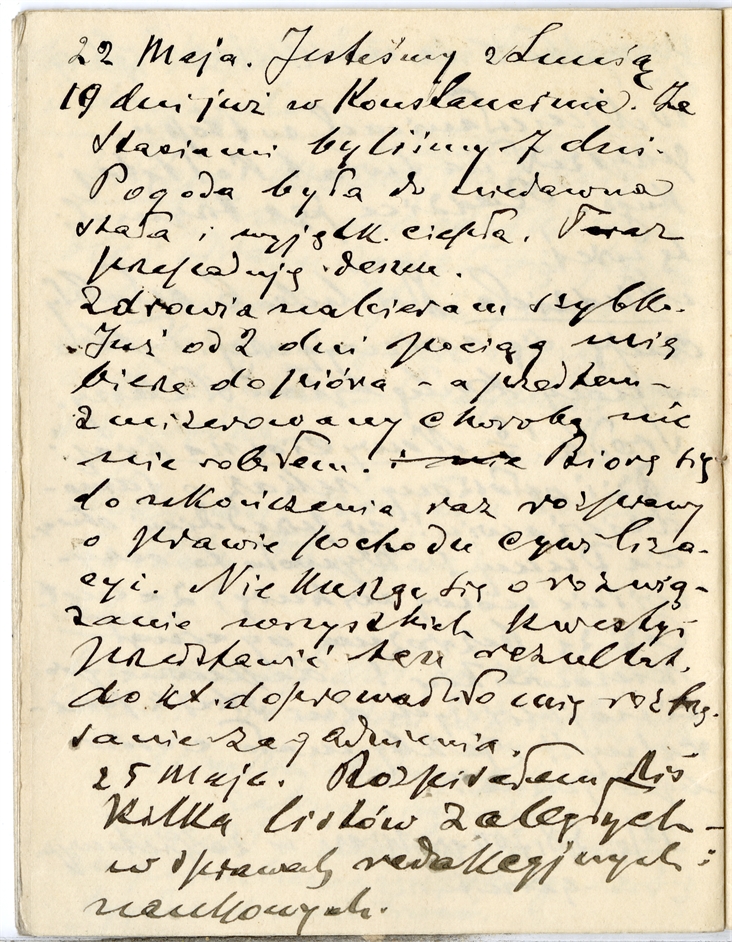 22 Maja. Jesteśmy z Lunią
19 dni już w Konstancinie. Ze
Stasiami byliśmy 7 dni.
Pogoda była do niedawna
stała i wyjątk. ciepła. Teraz
przepadują deszcze.
Zdrowia nabieram szybko.
Już od 2 dni pociąg mię
bierze do pióra – a przedtem –
zmizerowany chorobą nic
nie robiłem. Biorę się
do skończenia raz rozprawy
o prawie pochodu cywiliza-
cyi. Nie kuszę się o rozwią-
zanie wszystkich kwestyj
przedstawić ten rezultat,
do kt. doprowadziło mię roztrzą-
sanie zagadnienia.
25 Maja. Rozpisałem dziś
kilka listów zaległych –
w sprawach redakcyjnych i
naukowych.